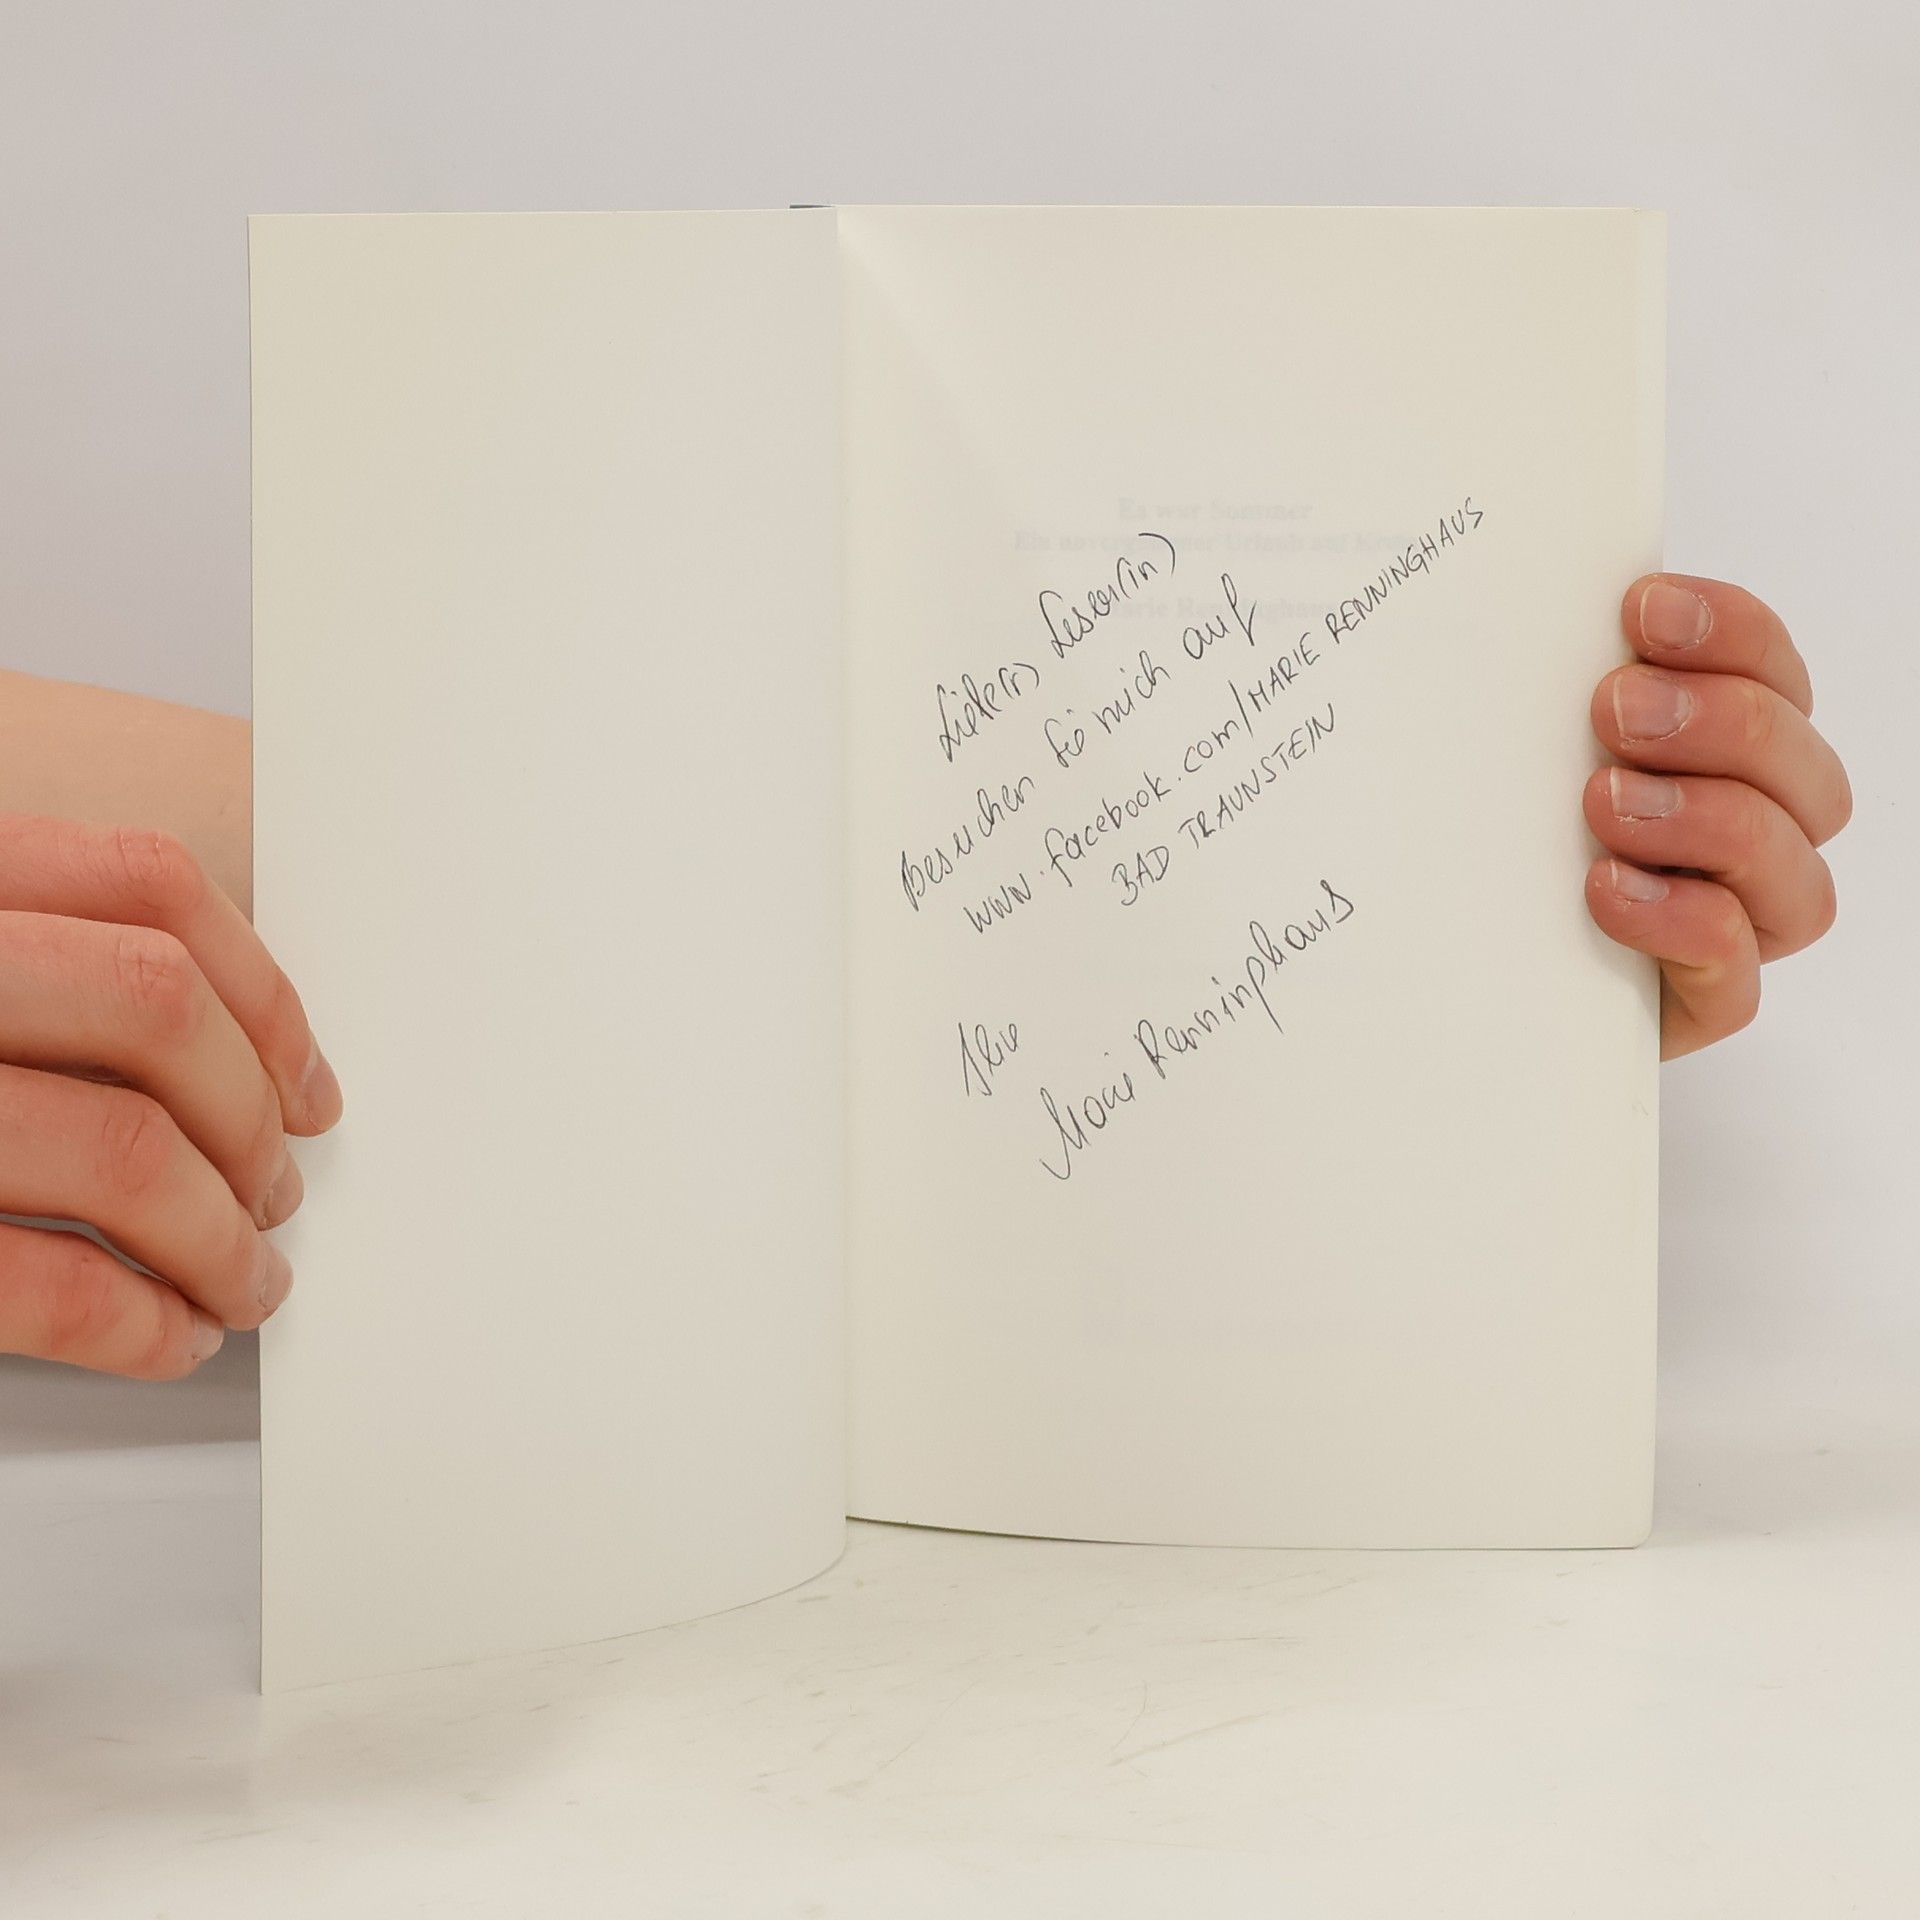 Es war Sommer
Ein unvergessener Urlaub auf Kreta
Marie Renninghaus
Liebe(r) Leser(in)
Besuchen Sie mich auf
www.facebook.com/MARIE RENNINGHAUS
BAD TRAUNSTEIN
Ihre
Marie Renninghaus